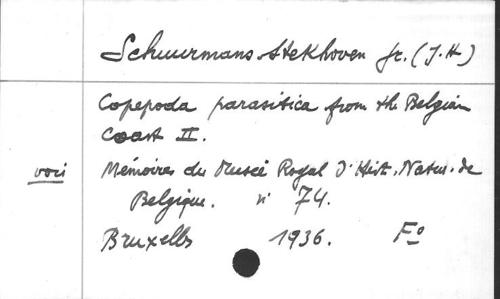 Schuurmans-Stekhoven Jr. (J.H)
Copepoda parasitica from the Belgian
Coast II.
voir Mémoires du Musée Royal d'Hist. Natur. de
Belgique. n° 74.
Bruxelles 1936. Fo